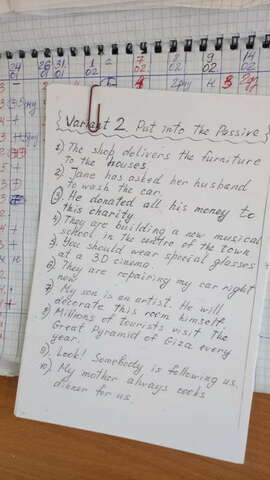 24 26 31. 1 2 7 8 9 14
01 01 01 02 02 02 02 02
Variant 2 Put into the Passive
1) The shop delivers the furniture
to the houses.
2) Jane has asked her husband
to wash the car.
3) He donated all his money to
this charity
4) They are building a new musical
school in the centre of the town
5) You should wear special glasses
at a 3D cinema.
6) They are repairing my car right
now
7) My son is an artist. He will
decorate this room himself.
8) Millions of tourists visit the
Great Pyramid of Giza every
year.
9) Look! Somebody is following us.
10) My mother always cooks
dinner for us.